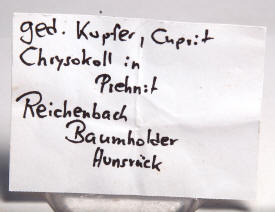 ged. Kupfer, Cuprit
Chrysokoll in
Prehnit
Reichenbach
Baumholder
Hunsrück